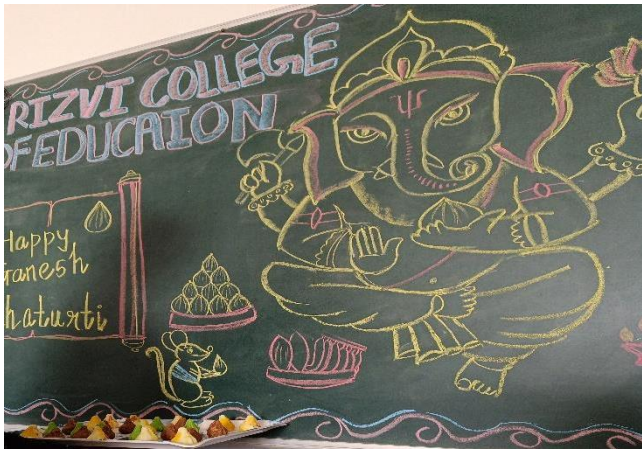 RIZVI COLLEGE
OF EDUCAION
Happy
Ganesh
haturti